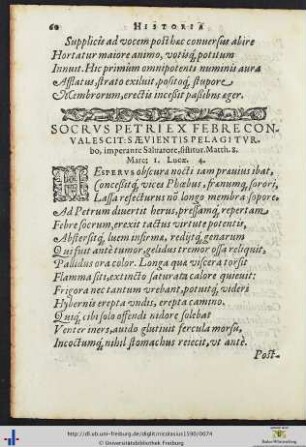 60 HISTORIA
Supplicis ad vocem posthac conversus abire
Hortatur maiore animo, votisq́; potitum
Innuit. Hic primùm omnipotenti numinis aura
Afflatus, strato exiluit, positoq́; stupore
Membrorum, erectis incessit passibus æger.
SOCRVS PETRI EX FEBRE CON-
VALESCIT: SÆVIENTIS PELAGI TVR-
bo, imperante Salvatore, sistitur. Matth. 8.
Marc: 1. Lucæ. 4.
HESPERVS obscura nocti iam prævius ibat,
Concessitq́; vices Phœbus, frænumq́; sorori,
Lassa refecturus nō longo membra sopore,
Ad Petrum divertit herus, pressamq́; repertam
Febre socrum, erexit tactus virtute potentis,
Abstersitq́; luem infirmæ, redijtq́; genarum
Qui fuit antè tumor, gelidus tremor ossa reliquit,
Pallidus ora color. Longa qua viscera torsit
Flamma siti, extincto saturata calore quievit:
Frigora nec tantum vrebant, potuitq́; videri
Hybernis erepta vndis, erepta camino.
Quiq́; cibi solo offendi nidore solebat
Venter iners, avido glutivit fercula morsu,
Incoctumq́; nihil stomachus reiecit, vt antè.
Post-
http://dl.ub.uni-freiburg.de/diglit/nicolasius1590/0074
© Universitätsbibliothek Freiburg
Baden-Württemberg